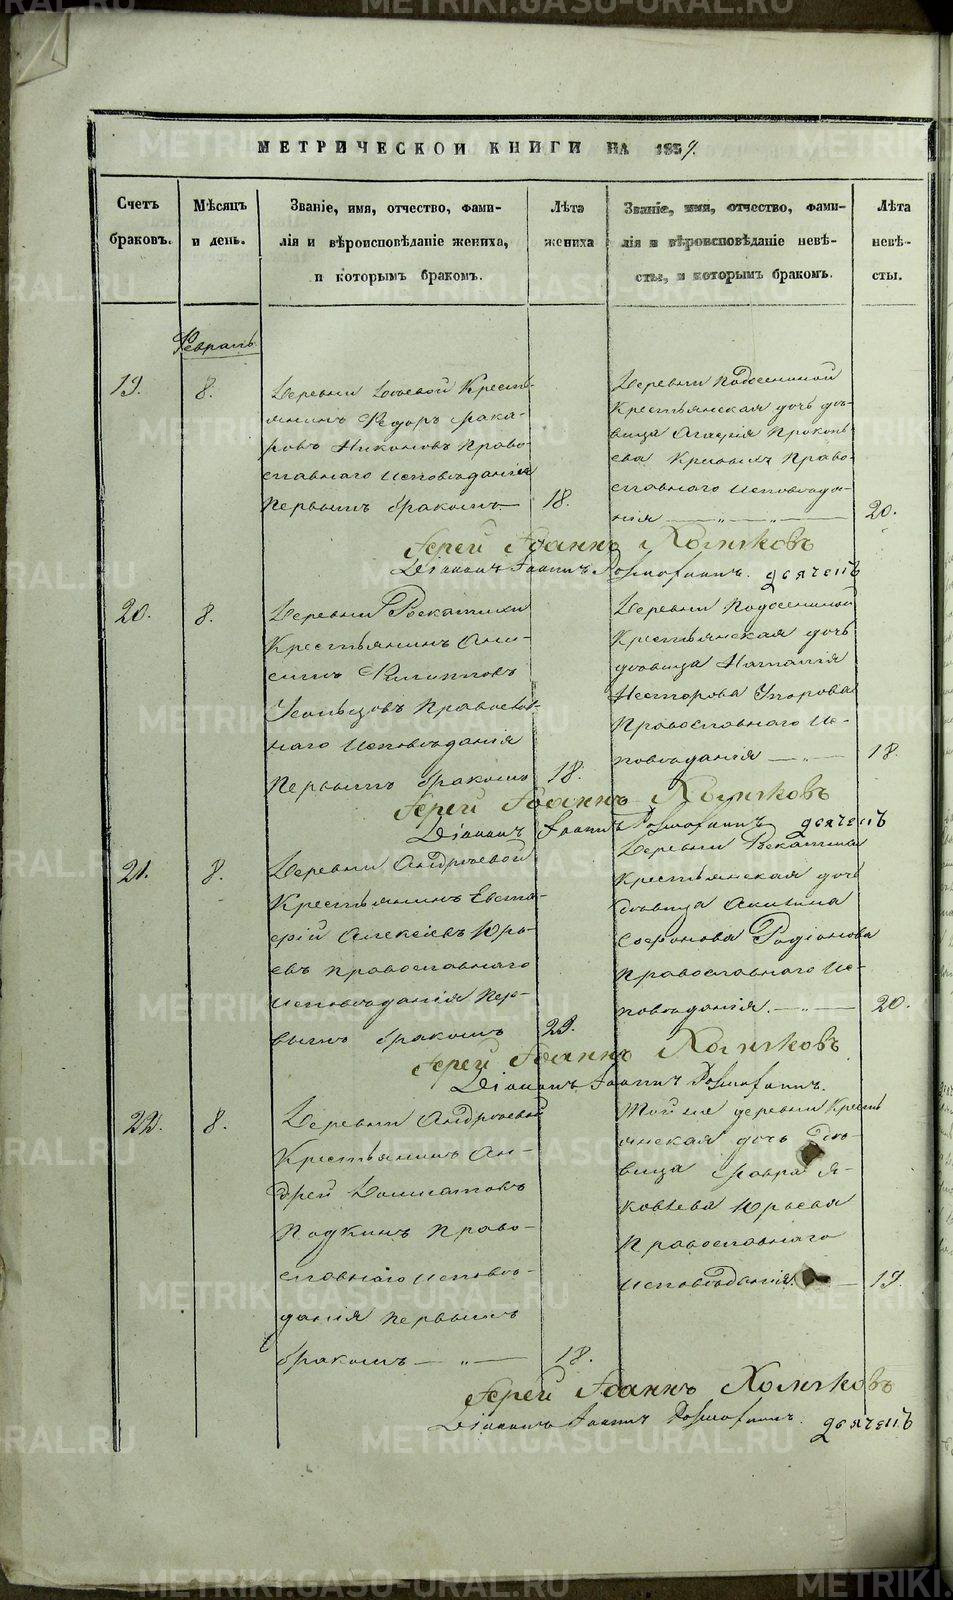 МЕТРИЧЕСКОЙ КНИГИ НА 1859.
Счетъ браковъ.
Мѣсяцъ и день.
Званіе, имя, отчество, фами-
лія и вѣроисповѣданіе жениха,
и которымъ бракомъ.
Лѣта жениха
Званіе, имя, отчество, фами-
лія и вѣроисповѣданіе невѣ-
сты, и которымъ бракомъ.
Лѣта невѣ-
сты.
Февраль
19.
8.
Деревни Кресть-
янинъ Ѳедоръ Мака-
ровъ Никоновъ Право-
славнаго Исповѣданія
Первымъ бракомъ
18.
Деревни Подосениной
Крестьянская дочь дѣ-
вица Агафія Прокопь-
ева Кривыхъ Право-
славнаго Исповѣда-
нія — „ —
20.
Іерей Іоаннъ Хомяковъ
Діаконъ Іоаннъ
20.
8.
Деревни
Крестьянинъ Они-
симъ Филипповъ
Усольцовъ Православ-
наго Исповѣданія
Первымъ бракомъ
18.
Деревни Подосениной
Крестьянская дочь
дѣвица Наталія
Несторова Упорова
Православнаго Ис-
повѣданія — „ —
18.
Іерей Іоаннъ Хомяковъ
Діаконъ Іоаннъ
21.
8.
Деревни Андрѣевой
Крестьянинъ Евста-
фій Алексѣевъ Юрь-
евъ Православнаго
Исповѣданія Пер-
вымъ бракомъ
23.
Деревни
Крестьянская дочь
дѣвица Акилина
Софронова Родіонова
Православнаго Ис-
повѣданія. — „ —
20.
Іерей Іоаннъ Хомяковъ
Діаконъ Іоаннъ
22.
8.
Деревни Андрѣевой
Крестьянинъ Ан-
дрей
Подкинъ Право-
славнаго Исповѣ-
данія Первымъ
бракомъ — „ —
18.
Той же деревни Кресть-
янская дочь дѣ-
вица Мавра Я-
ковлева Юрьева
Православнаго
Исповѣданія. —
19.
Іерей Іоаннъ Хомяковъ
Діаконъ Іоаннъ
METRIKI.GASO-URAL.RU